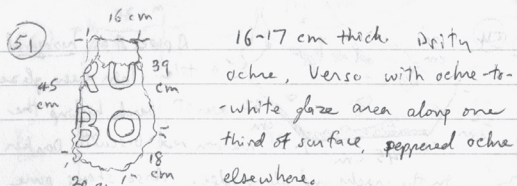 51
16 cm
RU
BO
39 cm
45 cm
18 cm
16-17 cm thick.
ochre, Verso with ochre-to-
-white glaze area along one
third of surface, peppered ochre
elsewhere.